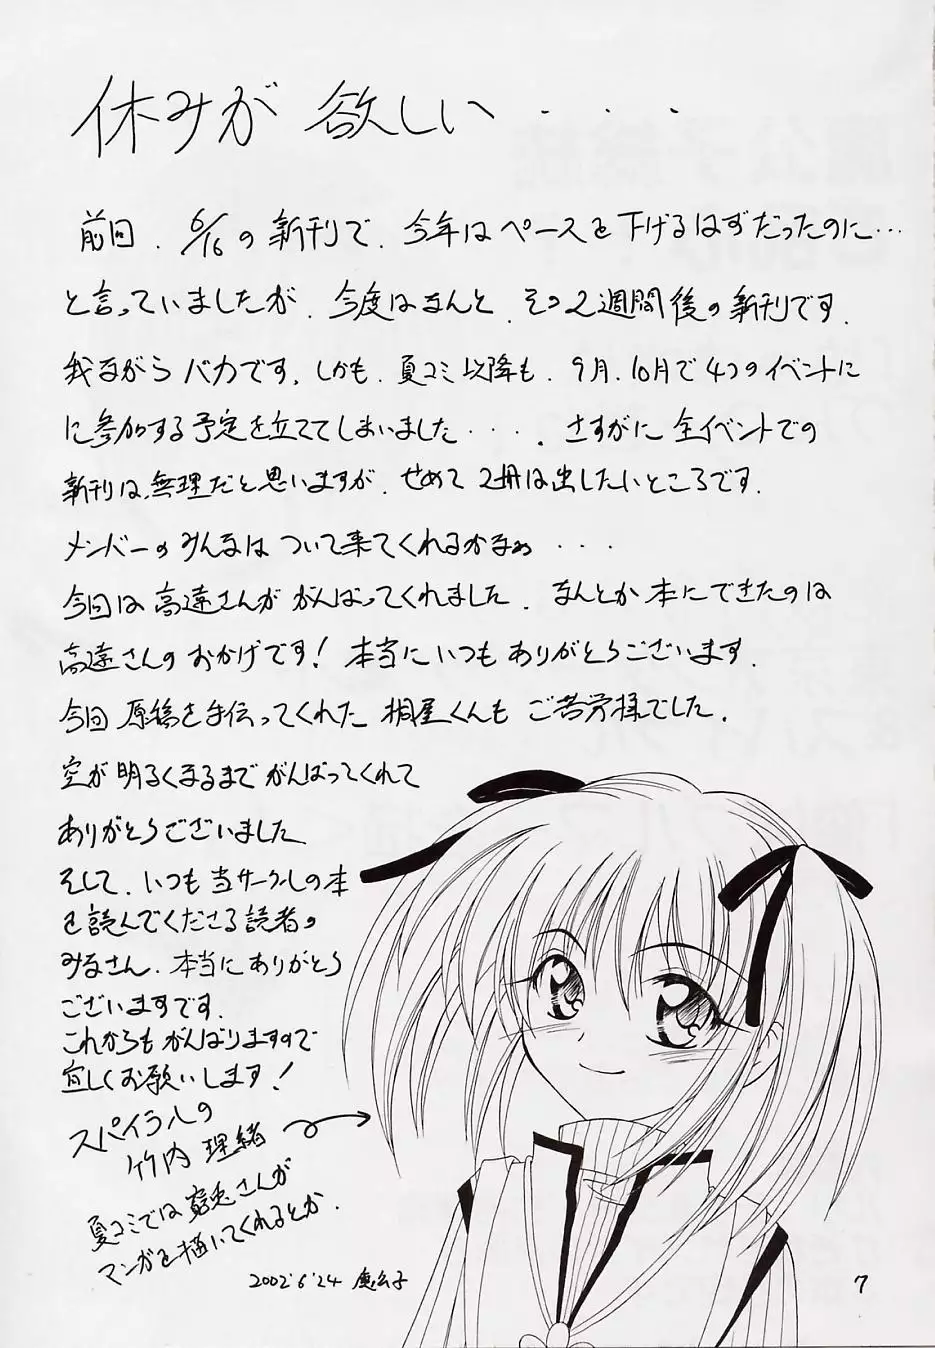 休みが 欲しい・・・
前回、6/16の新刊で、今年はペースを下げるはずだったのに…
と言っていましたが、今度はなんと、その2週間後の新刊です。
我ながらバカです。しかも、夏コミ以降も、9月、10月で4つのイベントに
に参加する予定を立ててしまいました・・・。さすがに全イベントでの
新刊は、無理だと思いますが、せめて2冊は出したいところです。
メンバーのみんなはついて来てくれるかなぁ・・・
今回は高遠さんががんばってくれました。なんとか本にできたのは
高遠さんのおかげです!本当にいつもありがとうございます。
今回原稿を手伝ってくれた桐屋くんもご苦労様でした。
空が明るくなるまでがんばってくれて
ありがとうございました
そして、いつも当サークルの本
を読んでくださる読者の
みなさん、本当にありがとう
ございますです。
これからもがんばりますので
宜しくお願いします!
スパイラルの
竹内理緒
夏コミでは 兎さんが
マンガを描いてくれるとか。
2002'6'24
7